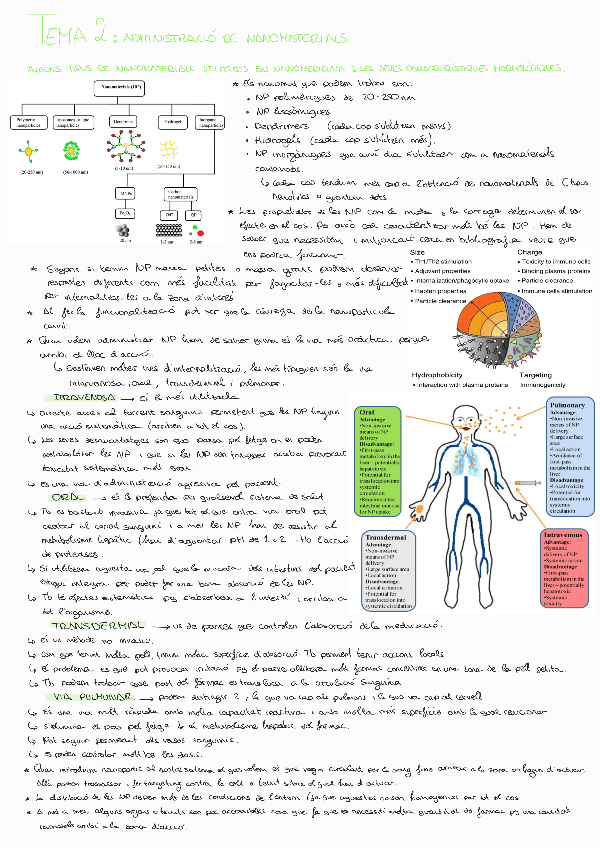 TEMA 2: ADMINISTRACIÓ DE NANOMATERIALS
ALGUNS TIPUS DE NANOMATERIALS UTILITZATS EN NANOMEDICINA I LES SEVES CARACTERÍSTIQUES MORFOLÒGIQUES.
Nanomaterials (10⁻⁹)
Polymeric nanoparticles
Liposomes or lipid nanoparticles
Dendrimer
Hydrogel
Inorganic nanoparticles
(20-250 nm)
(50-1000 nm)
(1-10 nm)
MNPs
Carbon nanomaterials
Fe₃O₄
CNT
QD
20 nm
1-2 nm
2-8 nm
* Els nanomat que podem trobar són:
• NP polimèriques de 20-250 nm
• NP liposòmiques
• Dendrímers (cada cop s'utilitzen menys)
• Hidrogels (cada cop s'utilitzen més).
• NP inorgàniques que avui dia s'utilitzen com a nanomaterials
↳ cada cop tendim més cap a l'obtenció de nanomaterials de C
o quantum dots
* Les propietats de les NP com la mida o la càrrega determinen el seu
efecte en el cos. Per això cal caracteritzar molt bé les NP. Hem de
saber què necessitem i mitjançant cerca en bibliografia veure què
ens podria funcionar.
Size
• Th1/Th2 stimulation
• Adjuvant properties
• Internalization/phagocytic uptake
• Hapten properties
• Particle clearance
Charge
• Toxicity to immune cells
• Binding plasma proteins
• Particle clearance
• Immune cells stimulation
Hydrophobicity
• Interaction with plasma proteins
Targeting
Immunogenicity
* Segons si tenim NP massa petites o massa grans podrem observar
respostes diferents com més facilitat per fagocitar-les o més dificultat
per internalitzar-les a la zona d'interès
* Al fer la funcionalització pot ser que la càrrega de la nanopartícula
canviï
* Quan volem administrar NP hem de saber quina és la via més pràctica perquè
arribi al lloc d'acció.
↳ Existeixen moltes vies d'internalització, les més típiques són la via
intravenosa, oral, transdermal i pulmonar.
INTRAVENOSA → és la més utilitzada
↳ Directe accés al torrent sanguini permetent que les NP tinguin
una acció sistemàtica (arriben a tot el cos).
↳ Les seves desavantatges són que passa pel fetge on es poden
metabolitzar les NP i que si les NP són tòxiques acaba provocant
toxicitat sistemàtica molt gran.
↳ És una via d'administració agressiva pel pacient.
ORAL → és la preferida per qualsevol sistema de salut
↳ Tb és bastant agressiva ja que tot el que entra via oral pot
acabar al corrent sanguini i a més les NP han de resistir al
metabolisme hepàtic (han d'aguantar pH de 1 o 2. Tb l'acció
de proteases.
↳ Si utilitzem aquesta via cal que la mucosa dels intestins del pacient
estigui íntegra per poder fer una bona absorció de les NP.
↳ Tb té efectes sistemàtics pq s'absorbeix a l'intestí i arriba a
tot l'organisme.
Oral
Advantage
•Non-invasive means of NP delivery
Disadvantage:
•First-pass metabolism in the liver – potentially hepatotoxic
•Potential for translocation into systemic circulation
•Requires intact intestinal mucose for NP uptake
Pulmonary
Advantage:
•Non-invasive means of NP delivery
•Large surface area
•Local action
•Avoidance of first-pass metabolism in the liver
Disadvantage:
•Local toxicity
•Potential for translocation into systemic circulation
Transdermal
Advantage:
•Non-invasive means of NP delivery
•Large surface area
•Local action
Disadvantage:
•Local irritation
•Potential for translocation into systemic circulation
Intravenous
Advantage:
•Systemic delivery of NP
•Systemic action
Disadvantage:
•First-pass metabolism in the liver – potentially hepatotoxic
•Systemic toxicity
TRANSDERMAL → ús de pegats que controlen l'alliberació de la medicació.
↳ És un mètode no invasiu.
↳ Com que tenim molta pell, tenim molta superfície d'absorció. Tb permet tenir accions locals
↳ El problema és que pot provocar irritació pq el pegat allibera molt fàrmac concentrat en una zona de la pell petita.
↳ Tb podem trobar que part del fàrmac es transloca a la circulació sanguínia
VIA PULMONAR → podem distingir 2, la que va cap als pulmons i la que va cap al cervell
↳ És una via molt ràpida amb molta capacitat reactiva i amb molta més superfície amb la qual reaccionar
↳ S'elimina el pas pel fetge i el metabolisme hepàtic del fàrmac.
↳ Pot seguir permeant als vasos sanguinis.
↳ Es poden controlar molt bé les dosis.
* Quan introduïm nanopartíc al nostre sistema el que volem és que vagin circulant per la sang fins arribar a la zona on hagin d'actuar.
Allà podran travessar i fer targeting contra la cèl·l o teixit sobre el qual han d'actuar.
* La distribució de les NP depèn molt de les condicions de l'entorn (ja que aquestes no són homogènies per tot el cos
* A més a més, alguns òrgans o teixits són poc accessibles cosa que fa que es necessiti molta quantitat de fàrmac pq una quantitat
raonable arribi a la zona d'acció.